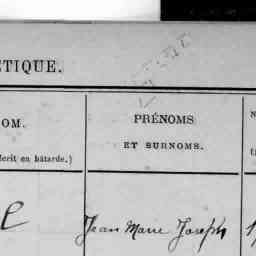 ÉTIQUE.
OM.
PRÉNOMS
ET SURNOMS.
écrit en bâtarde.)
Jean Marie Joseph